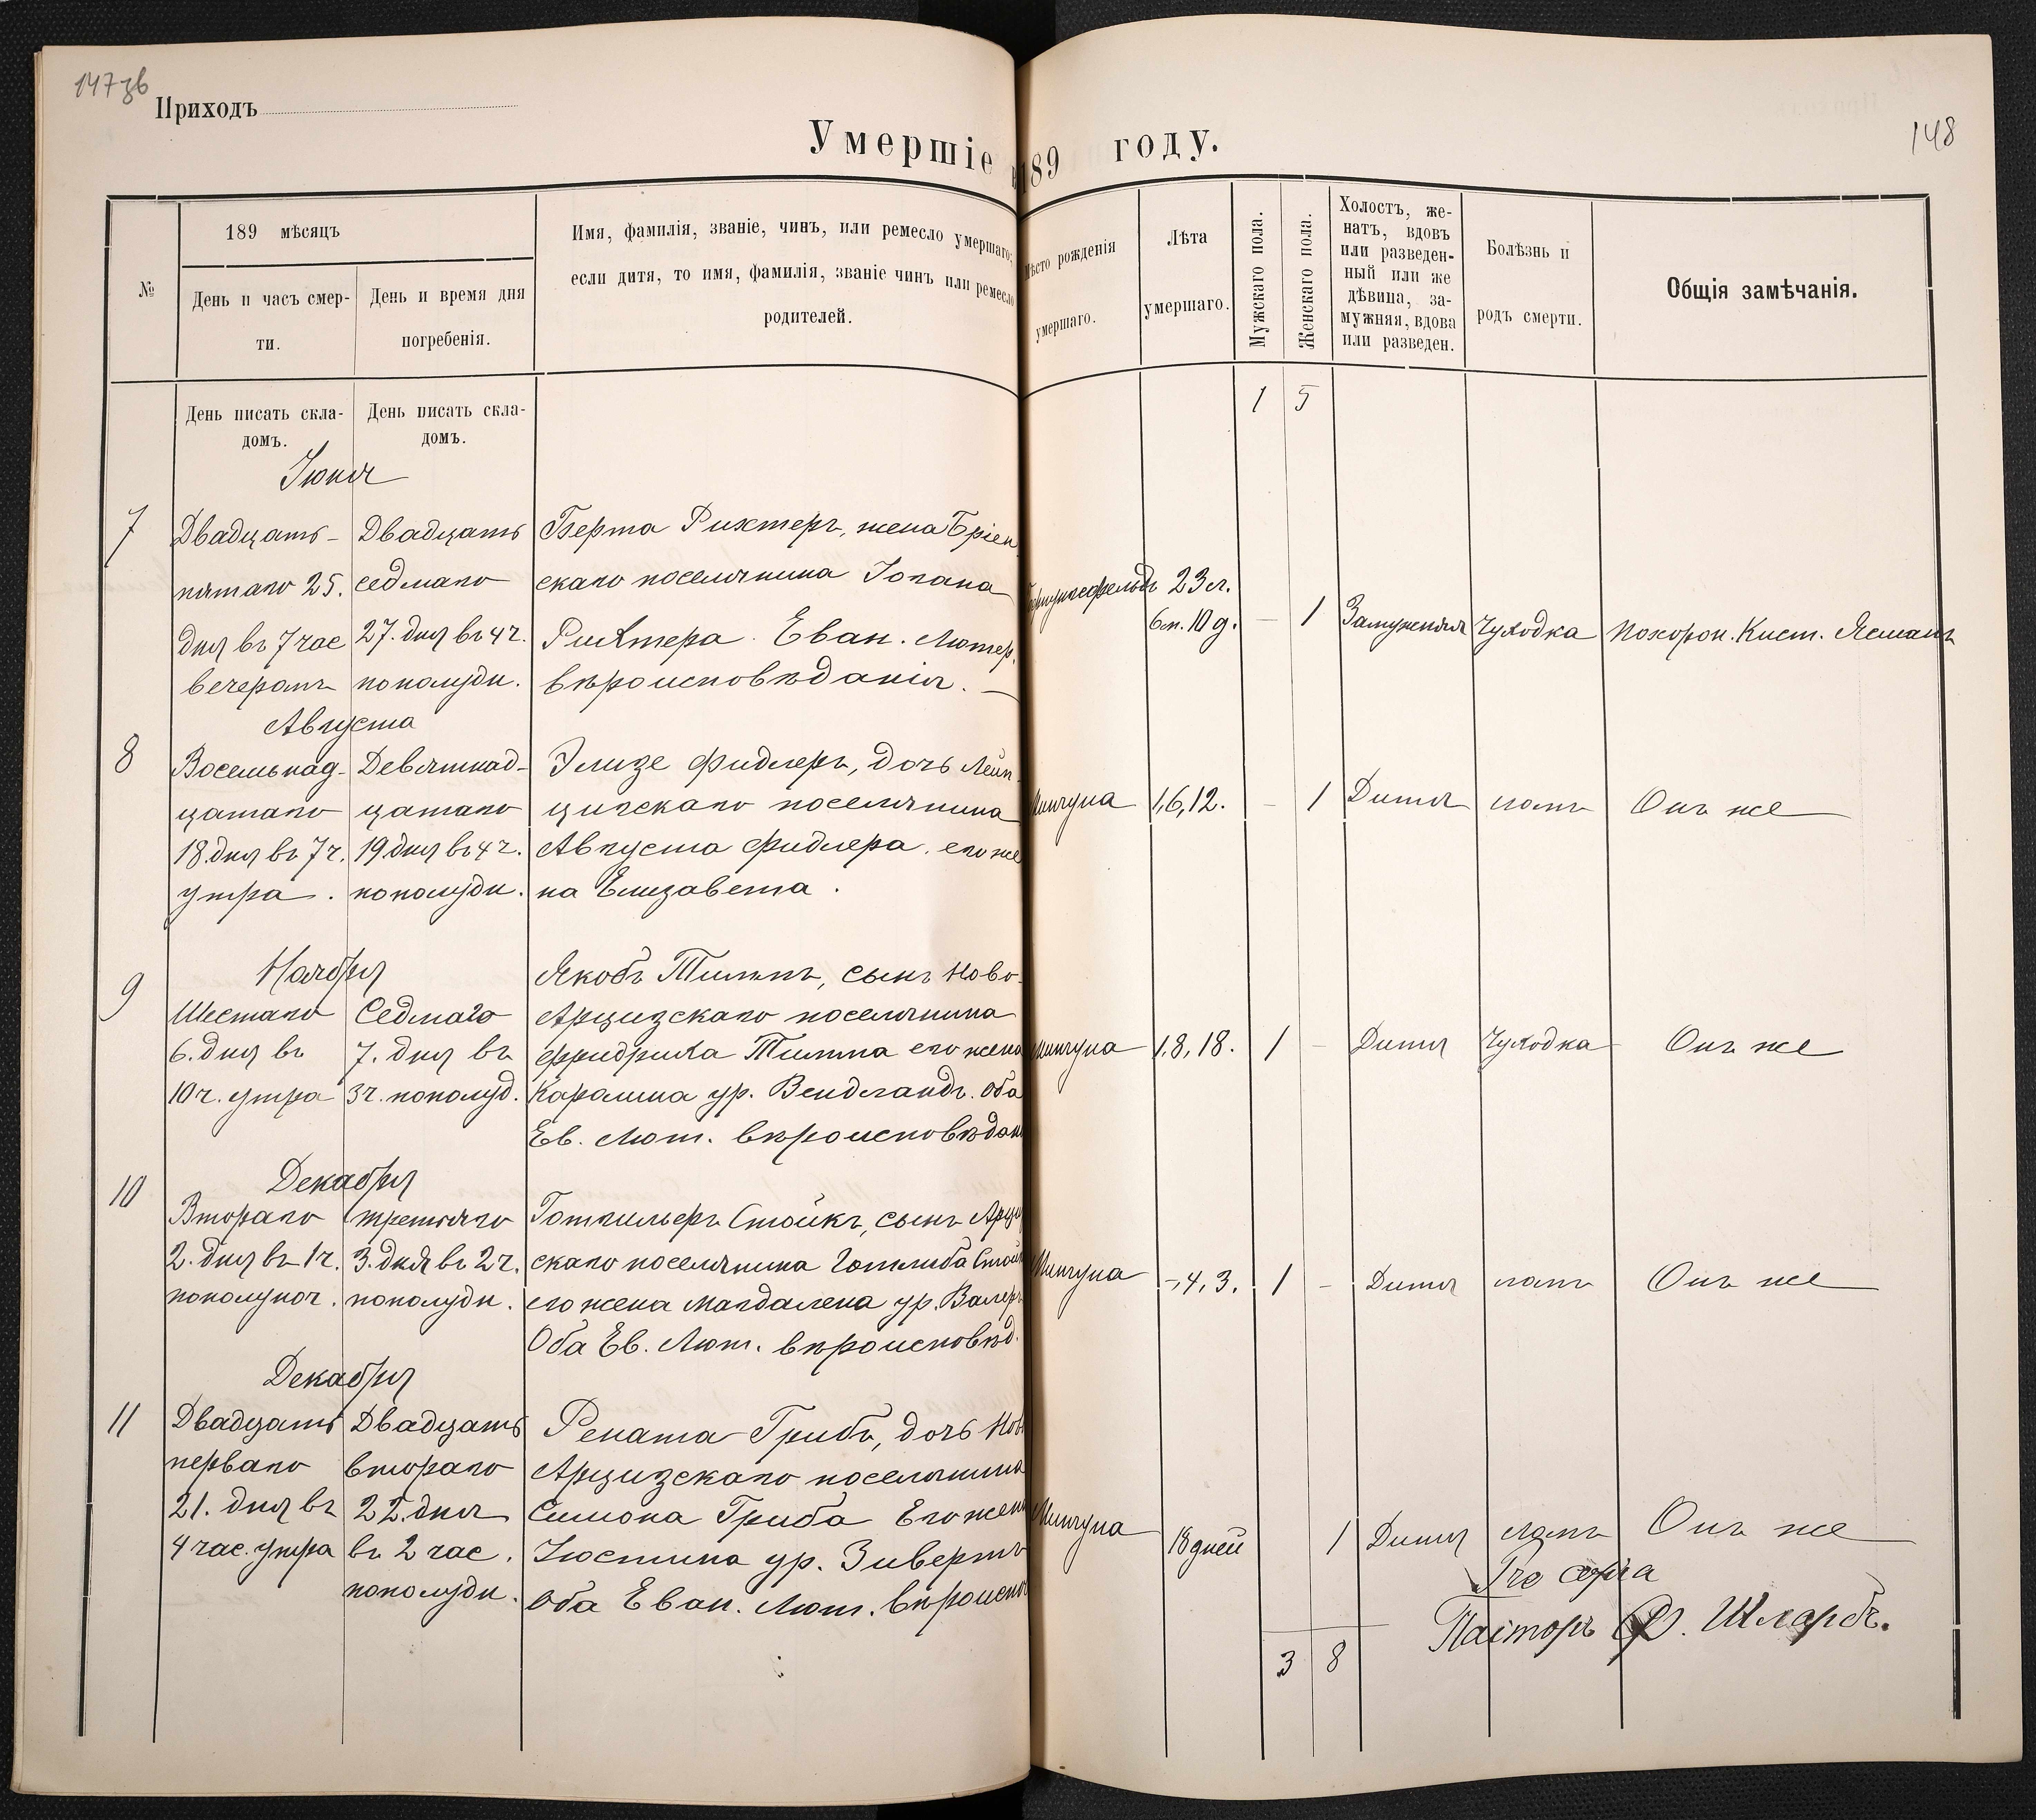 147 зв
148
Приходъ
Умершіе 189 году.
№
189 мѣсяцъ
День и часъ смер-
ти.
День и время дня
погребенія.
Имя, фамилія, званіе, чинъ, или ремесло умершаго;
если дитя, то имя, фамилія, званіе чинъ или ремесло
родителей.
Мѣсто рожденія
умершаго.
Лѣта
умершаго.
Мужскаго пола.
Женскаго пола.
Холостъ, же-
натъ, вдовъ
или разведен-
ный или же
дѣвица, за-
мужняя, вдова
или разведен.
Болѣзнь и
родъ смерти.
Общія замѣчанія.
День писать скла-
домъ.
День писать скла-
домъ.
1 5
Іюня
7
Двадцать-
пятаго 25.
дня въ 7 час
вечеромъ
Двадцать
седмаго
27. дня въ 4 ч.
пополудн.
Берта Рихтеръ, жена Бріен
скаго поселянина Іогана
Рихтера. Еван. Лютер.
вѣроисповѣданія. —
23 л.
6 м. 10 д.
— 1
Замужняя
Чуходка
Похорон. Кист. Ясманъ
Августа
8
Восемьнад-
цатаго
18. дня въ 7 ч.
утра.
Девятнад-
цатаго
19 дня въ 4 ч.
пополудн.
Элизе Фидлеръ, дочь Лейп-
цигскаго поселянина
Августа Фидлера. его же
на Елизавета.
Мингуна
1,6,12.
— 1
Дитя
Онъ же
Ноября
9
Шестаго
6. дня въ
10 ч. утра
Седмаго
7. дня въ
3 ч. пополуд.
Якобъ Тиммъ, сынъ Ново-
Арцизскаго поселянина
Фридриха Тимма его жена
Каролина ур. Вендландъ. Оба
Ев. Лют. вѣроисповѣдан
Мингуна
1,8,18.
1 —
Дитя
Чуходка
Онъ же
Декабря
10
Втораго
2. дня въ 1 ч.
пополуноч.
третяго
3. дня въ 2 ч.
пополудн.
Готгильфъ Стойкъ, сынъ Арци
скаго поселянина Готлиба Стойк
его жена Магдалена ур. Валеръ
Оба Ев. Лют. вѣроисповѣд.
Мингуна
—,4,3.
1 —
Дитя
Онъ же
Декабря
11
Двадцать
перваго
21. дня въ
4 час. утра
Двадцать
втораго
22. дня
въ 2 час.
пополудн.
Рената Грибъ, дочь Нов
Арцизскаго поселянина
Симона Гриба Его жена
Юстина ур. Зивертъ
Оба Еван. Лют. вѣроиспо
Мингуна
18 дней
1
Дитя
Онъ же
Pro copia
Пасторъ Ф. Шлорбъ.
3 8